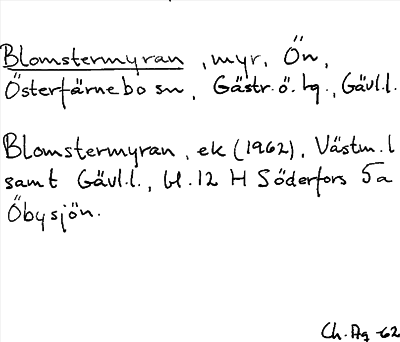 Blomstermyran, myr, Ön,
Österfärnebo sn, Gästr. ö. hg., Gävl.l.
Blomstermyran, ek (1962), Västm. l
samt Gävl.l., bl. 12 H Söderfors 5a
Öbysjön.
Ch. Ag -62